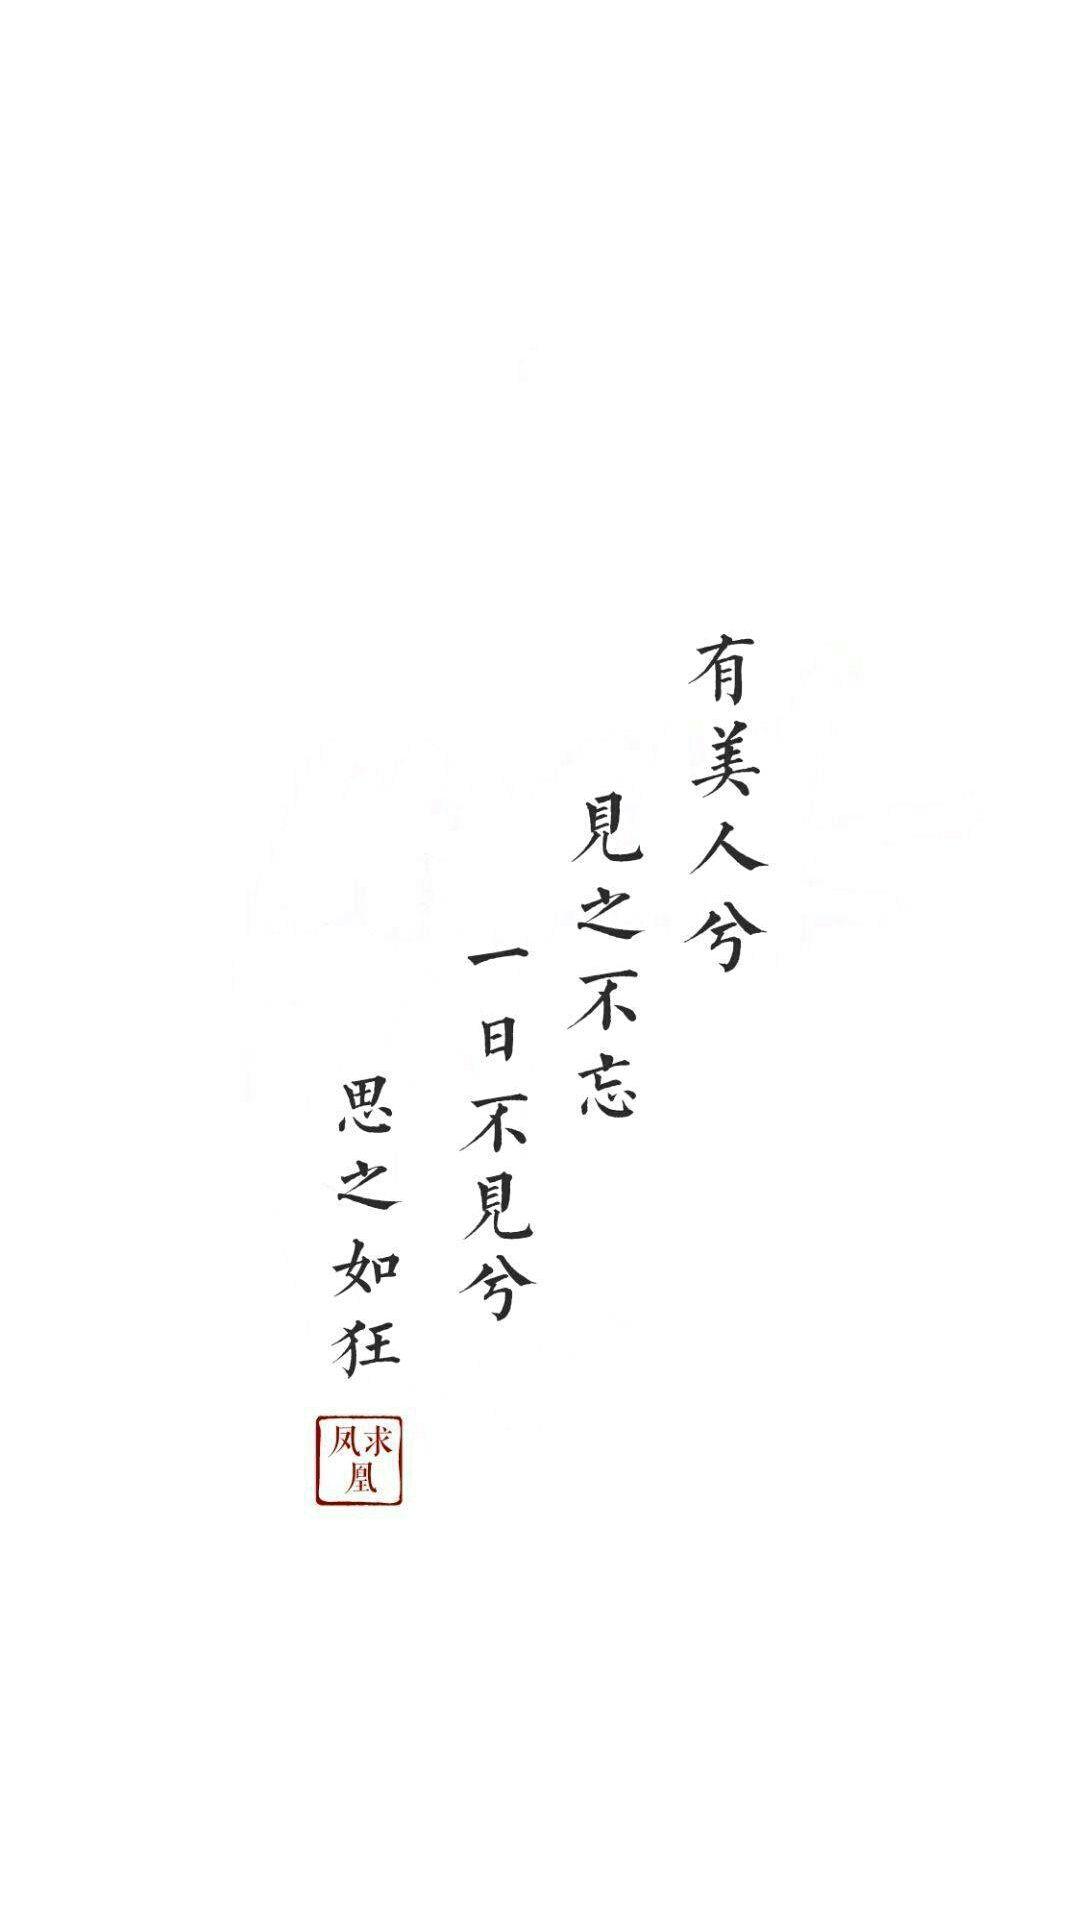 有美人兮
見之不忘
一日不見兮
思之如狂
求凰
凤